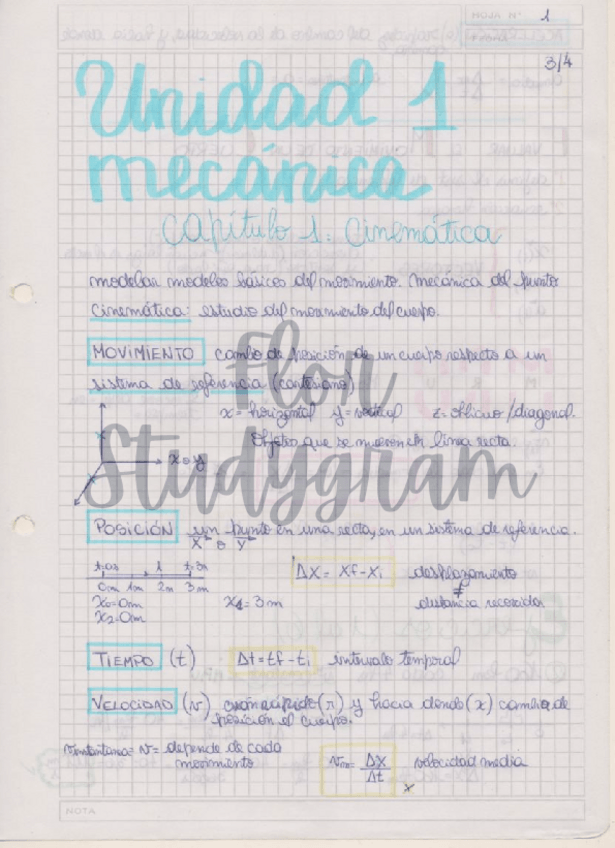 Nº ALON 1
3/4
Unidad 1
mecánica
Capítulo 1: Cinemática
modelar modelos básicos del movimiento. mecánica del punto
Cinemática: estudio del movimiento del cuerpo.
MOVIMIENTO cambo de posición de un cuerpo respecto a un
sistema de referencia (cartesiano)
x = horizontal y = vertical z = oblicuo / diagonal.
Objetos que se mueven en línea recta.
x o y
Flor
Studygram
POSICIÓN un punto en una recta, en un sistema de referencia.
x o y
t=0s 1 t=3s
0m 1m 2m 3m
ΔX = Xf - Xi desplazamiento
≠
X0=0m X1= 3m distancia recorrida
X2=0m
TIEMPO (t) Δt = tf - ti intervalo temporal
VELOCIDAD (v) cuán rápido (r) y hacia donde (x) cambia de
posición el cuerpo.
Vinstantanea = v = depende de cada
movimiento
Vm = ΔX / Δt velocidad media
x
NOTA